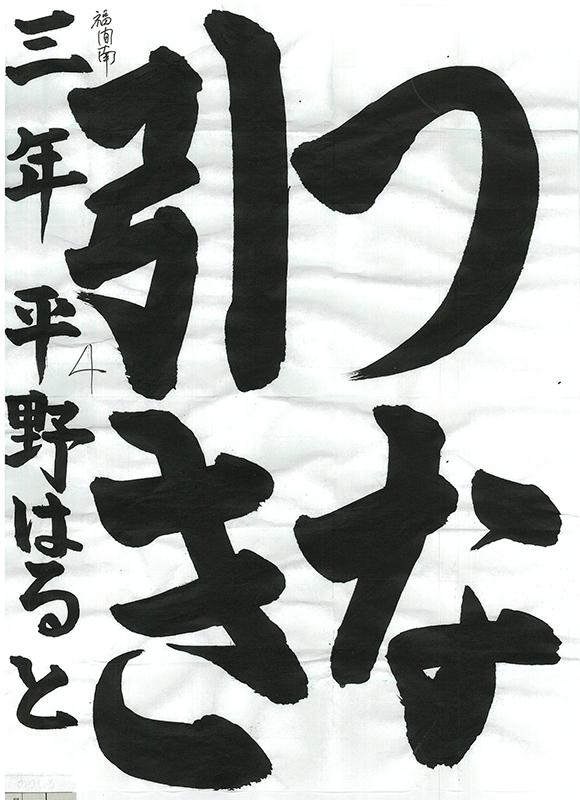 つな
引き
三年 平野はると
福間南
4